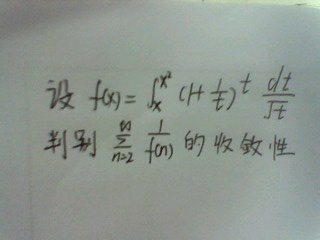 设 f(x) = ∫ₓ^{x²} (1+1/t)^t dt/√t
判别 ∑_{n=2}^{∞} 1/f(n) 的收敛性